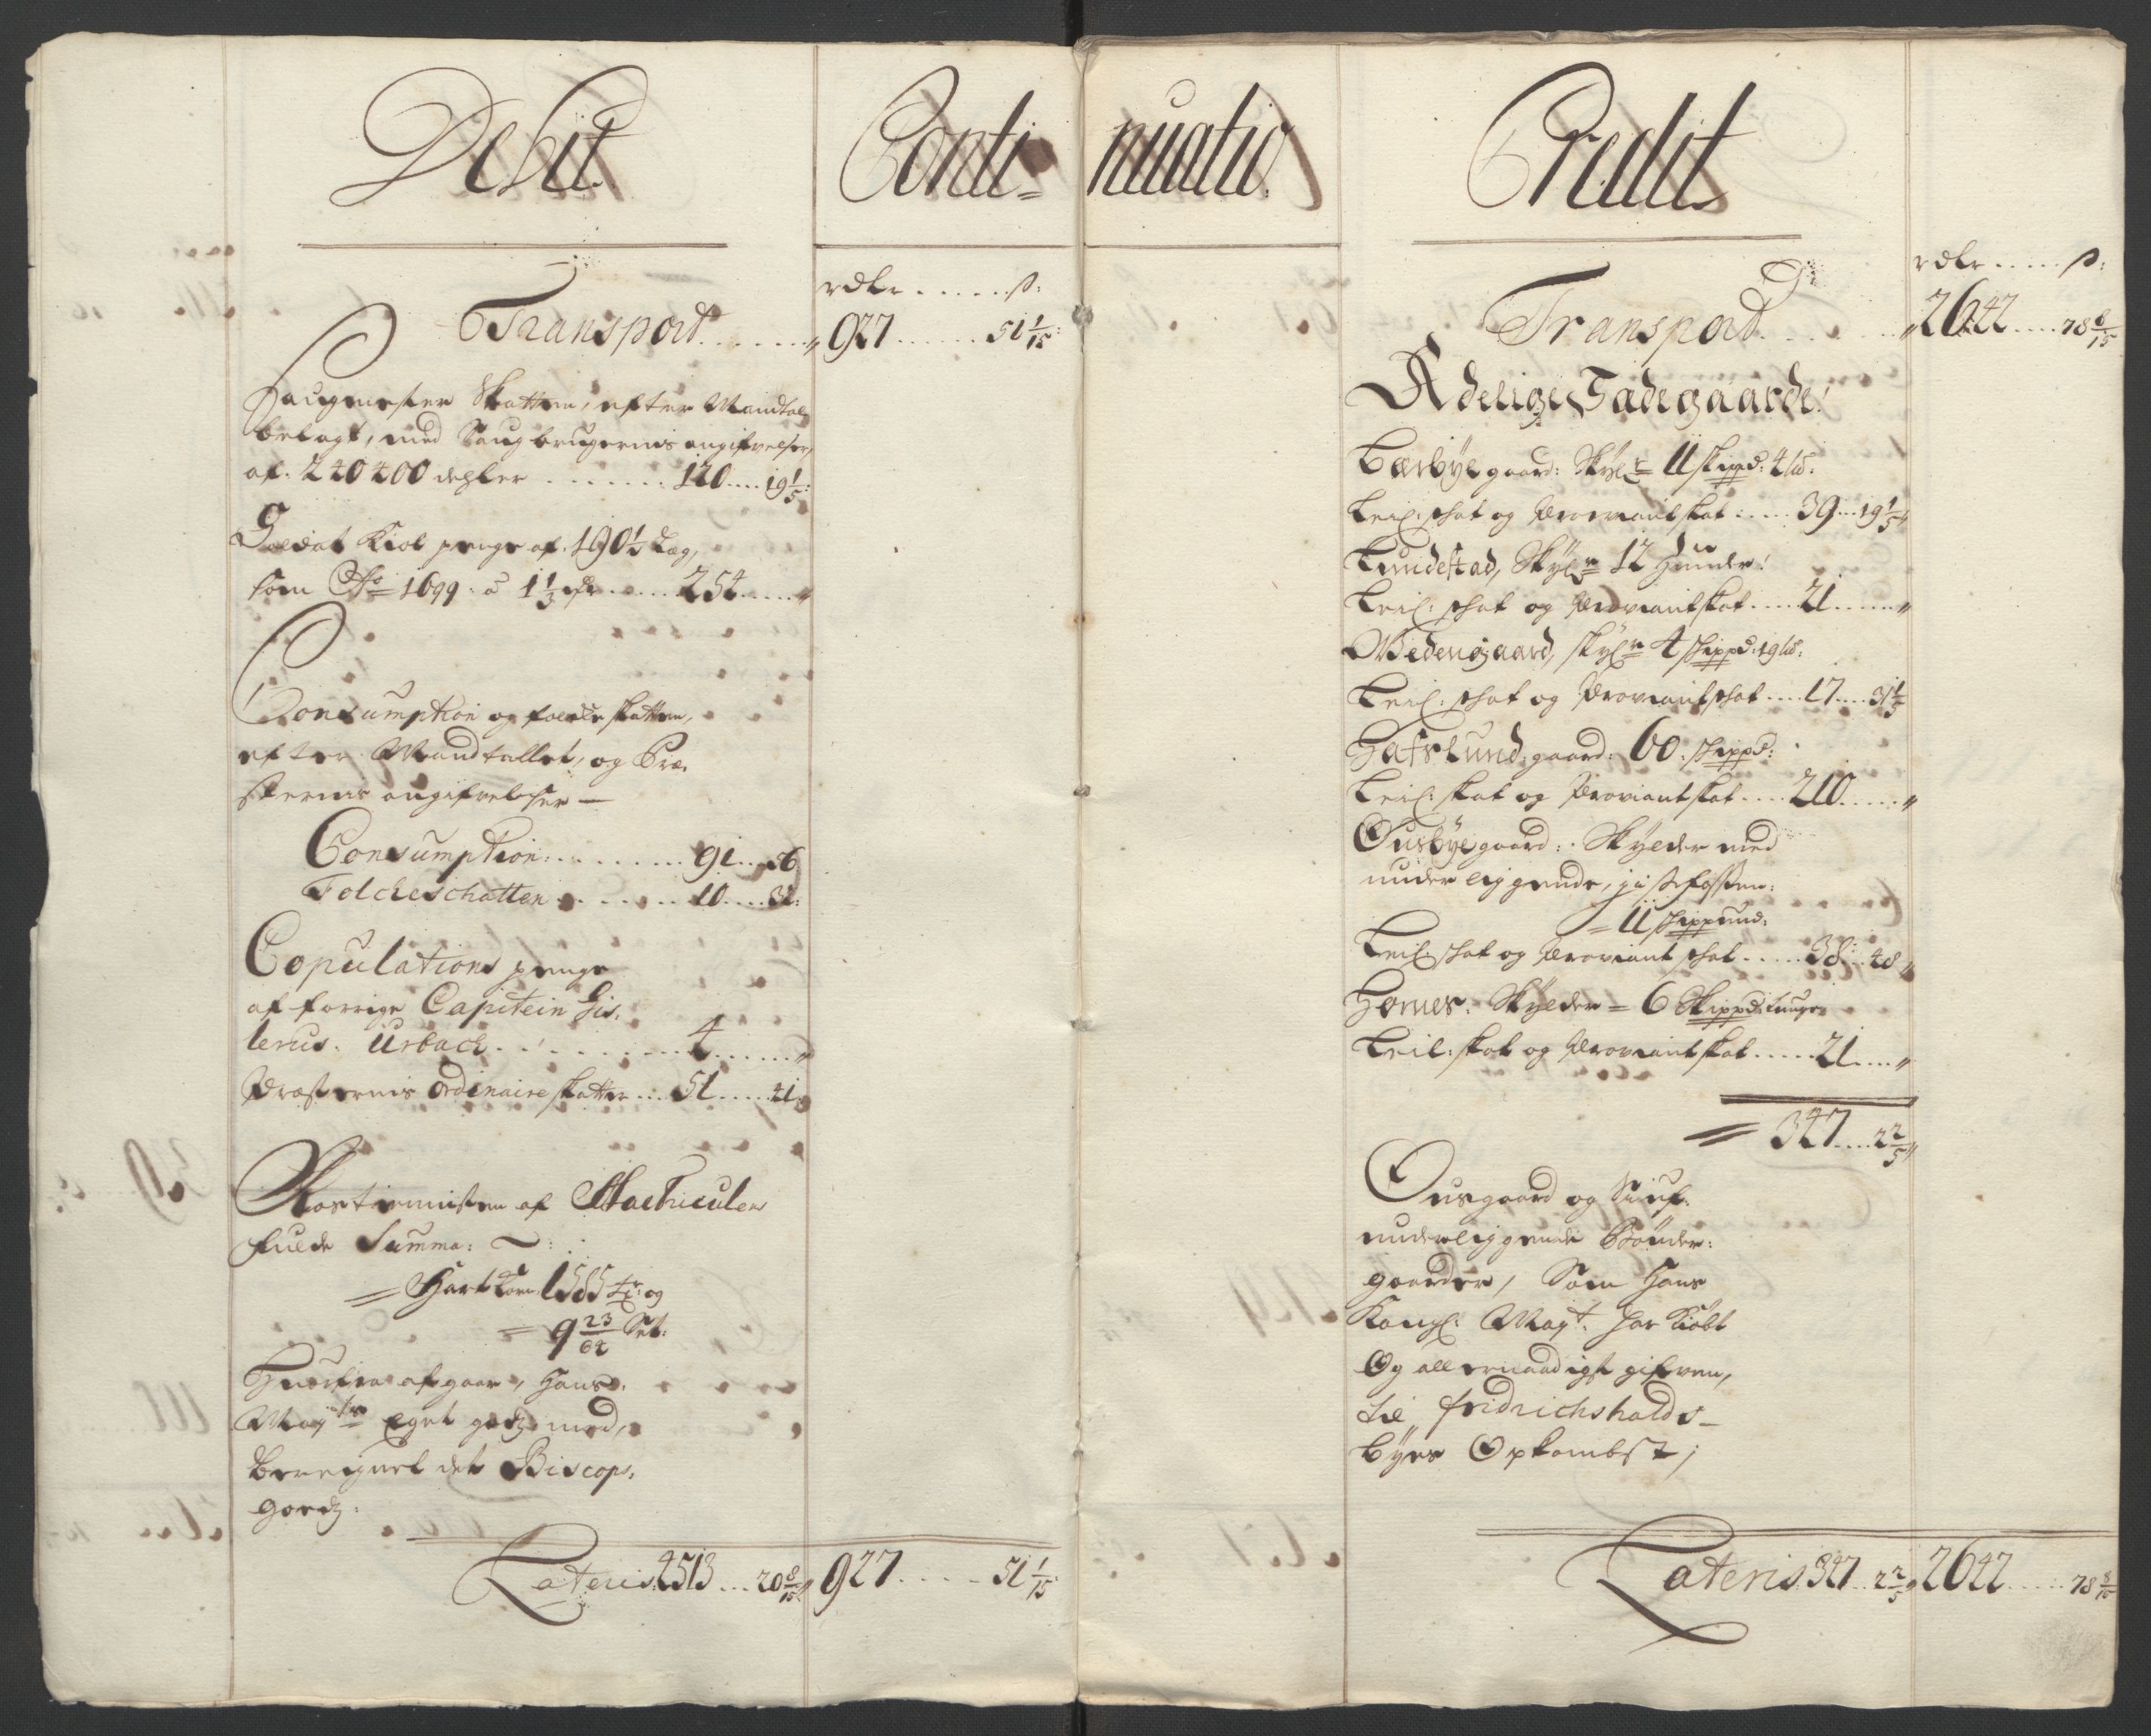 Debit
Conti=
rdlr ...... ß:
Transport ....... 927 ...... 51 1/15:
Saugmester Skatten, efter Mandtal
belagt, med Saugbrugernis angifvelser,
af. 240400 dehler ....... 120 .... 19 1/5:
Soldat Kiol penge af. 190 1/2 Læg,
som Ao 1699: á 1 1/3 rdr ..... 254 ..... "
Consumption og folcke skatten,
efter Mandtallet, og Præ,
sternis angifvelser —
Consumption: ......... 91 ... 56
Folcheschatten ........ 10 .... 32:
Copulations penge
af forrige Capitein Gis,
lerus. Urbach ......... 4 ...... "
Præsternis Ordinaire skatter ... 51 ..... 41:
Rostienisten af Matriculens
fulde Summa:
= Hart Korn 1585 tr: og
= 9 23/64 Set:
Huorfra afgaar, Hans
Mayts Eget godz med,
beregnet det Biscops,
godz:
Lateris 4513 ... 20 8/15 " 927 ..... 51 1/15
nuatio.
Credit
rdlr ..... ß:
Transport ....... " 2642 .... 78 8/15
Adelige Sædegaarde!
Bærbye gaard: Skylr 11 skippd: 4 lis:
Leil: schat og Proviantskat ..... 39 ... 19 1/5 "
Lundestad, Skylr 12 Hunder!
Leil: schat og Proviantskat .... 21 ...... "
Wedengaard, skylr 4 skippd: 19 lis:
Leil: schat og Proviantschat .... 17 .... 31 1/5
Hafslund gaard: 60. skippd:
Leil: skat og Proviantskat .... 210 ..... "
Ousbye gaard: Skylder med
underliggende,
= 11 skippund:
Leil: schat og Proviant schat ..... 38 .. 48 "
Hornes. Skylder = 6 Skippd: tunge
Leil: skat og Proviantskat ..... 21 .... "
= 347 .... 2 2/5 "
Ousgaard og
underliggende Bønder:
gaarder, Som Hans
Kongl: Mayt. har Kiøbt
Og allernaadigst gifven,
til fridrichshalds
byes Opkombst;
Lateris 347 .. 2 2/5 " 2642 ..... 78 8/15